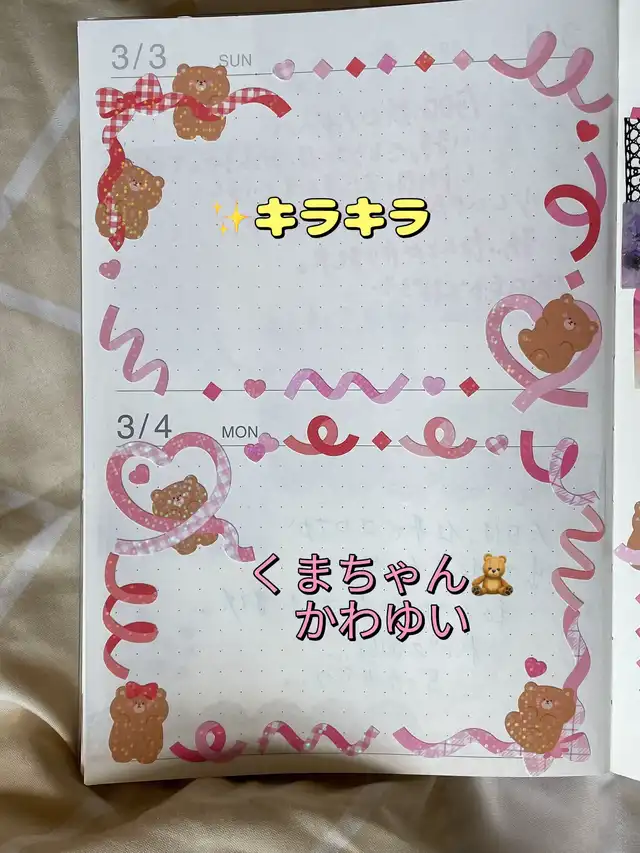 3/3 SUN
✨キラキラ
3/4 MON
くまちゃん🧸
かわゆい